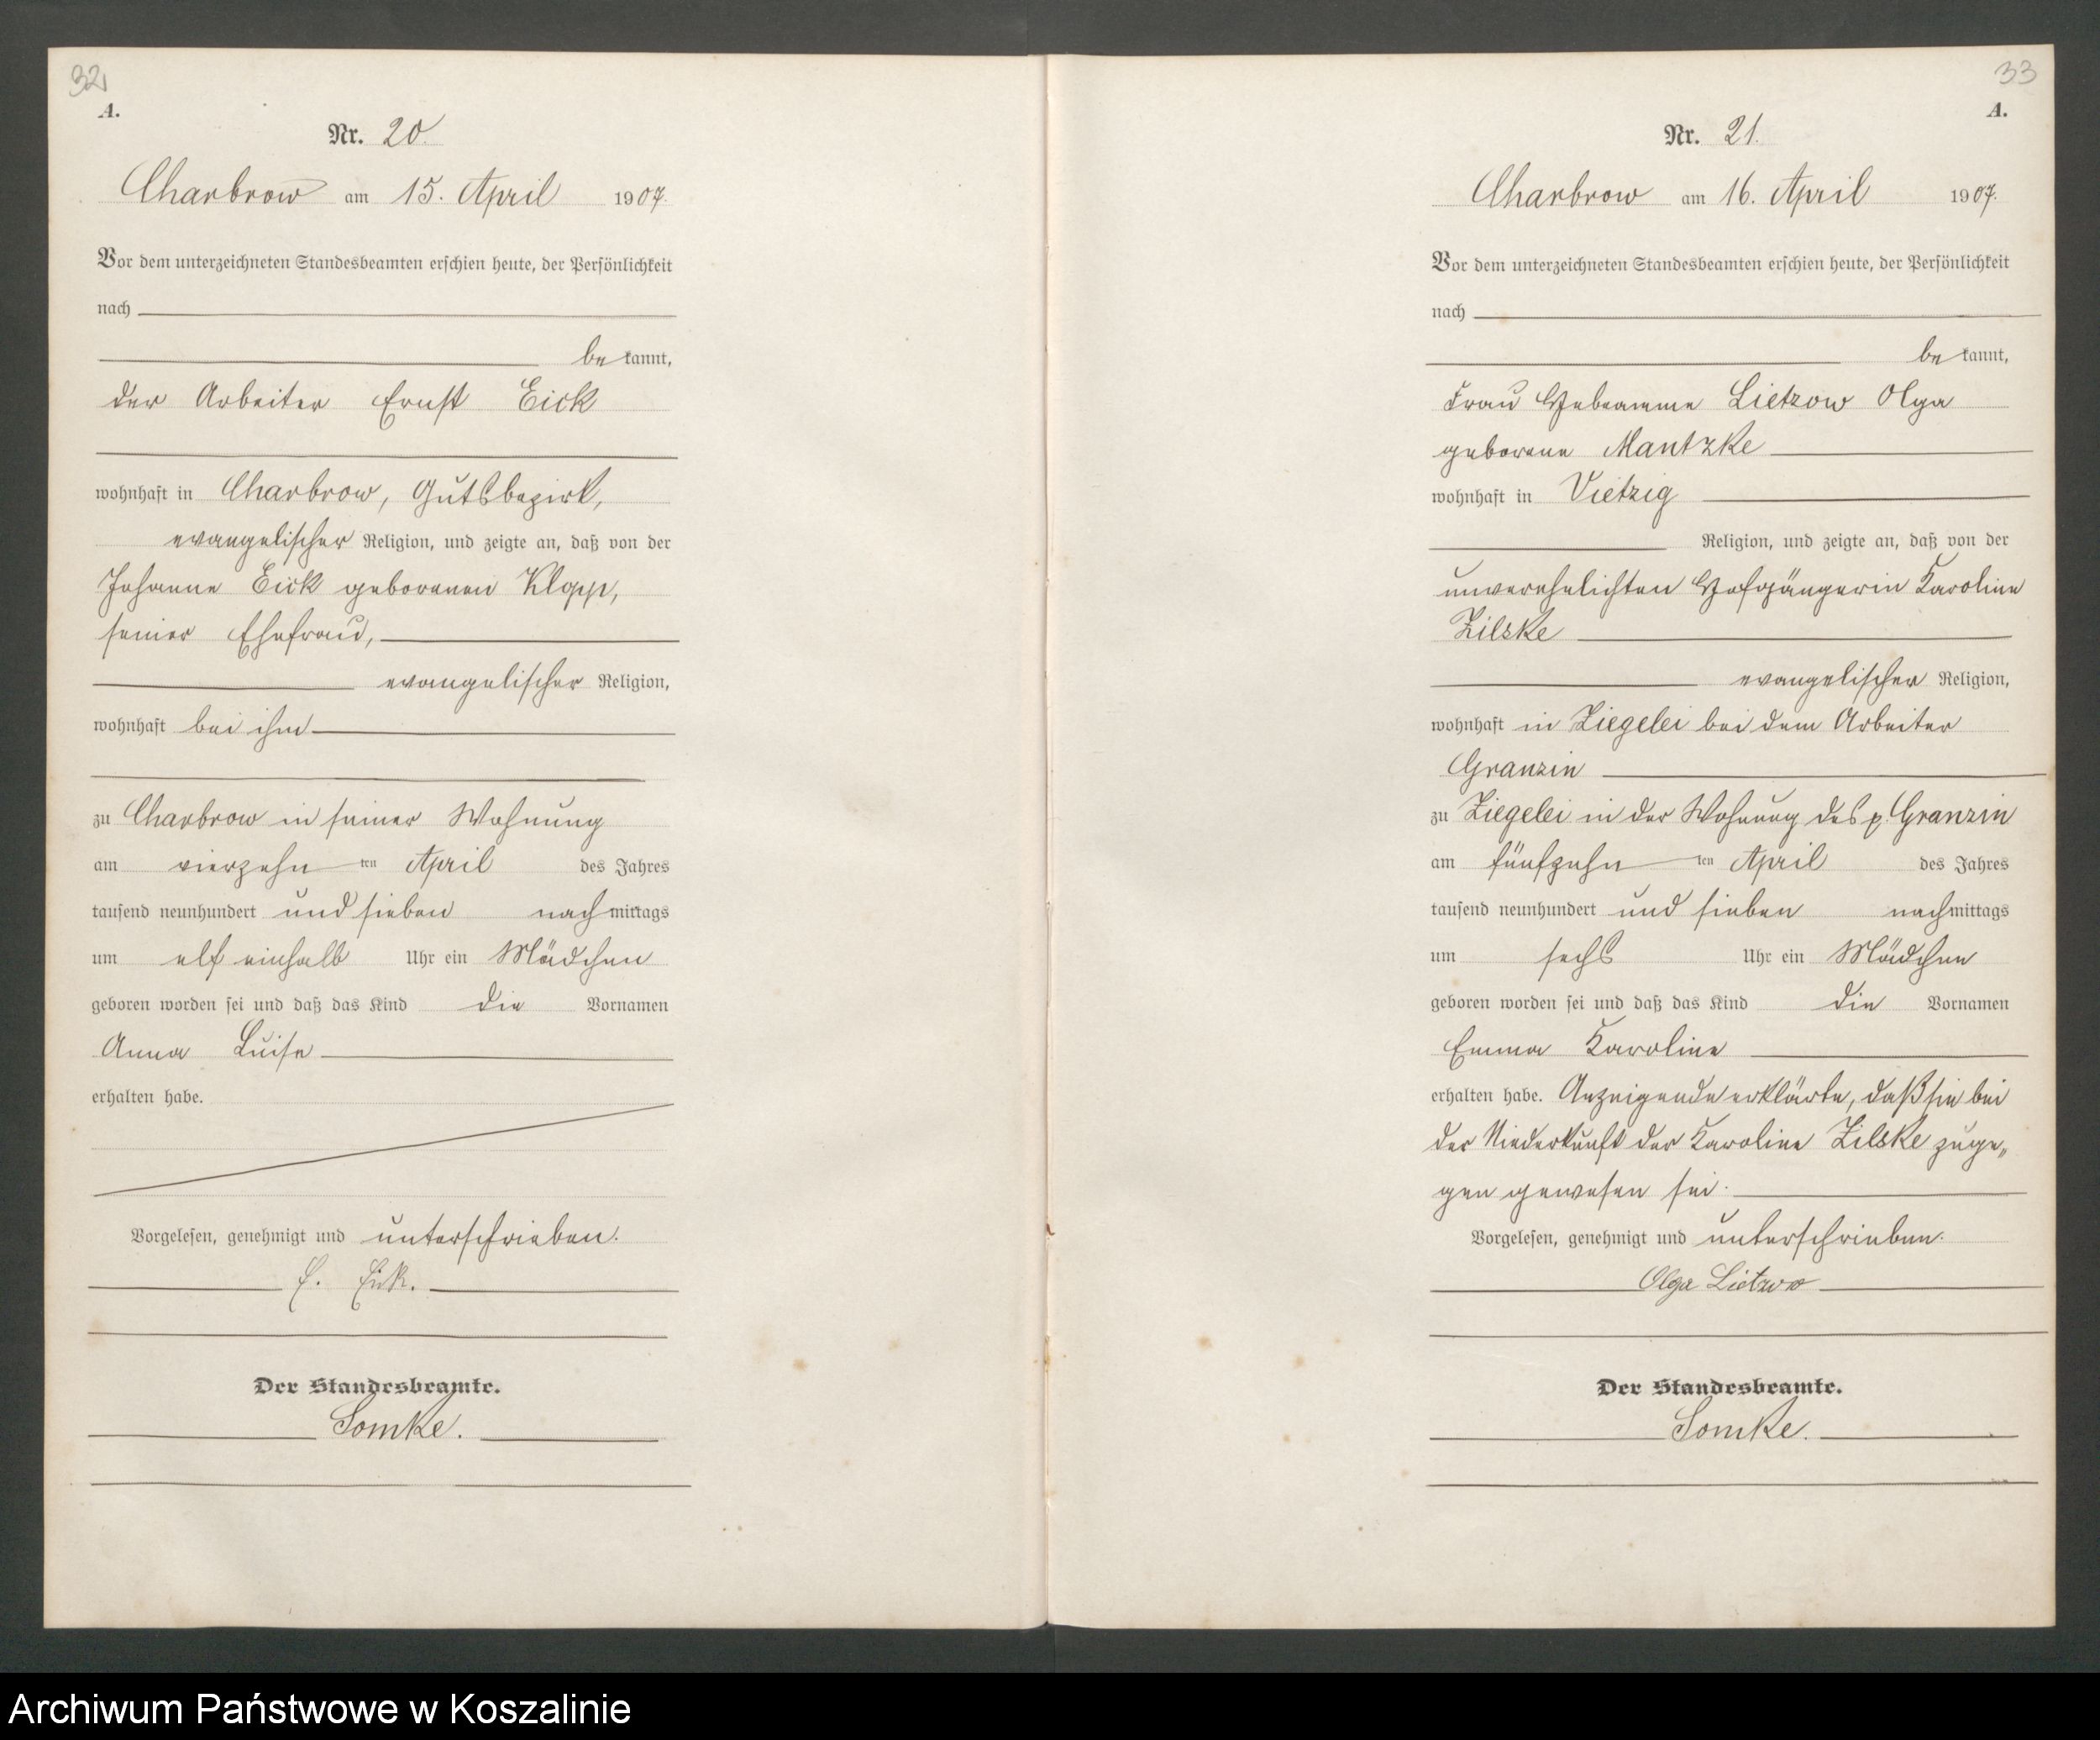 32
A.
Nr. 20.
Charbrow am 15. April 1907.
Vor dem unterzeichneten Standesbeamten erschien heute, der Persönlichkeit
nach
be kannt,
der Arbeiter Ernst Eick
wohnhaft in Charbrow, Gutsbezirk,
evangelischer Religion, und zeigte an, daß von der
Johanne Eick geborenen Klopp,
seiner Ehefrau,
evangelischer Religion,
wohnhaft bei ihm
zu Charbrow in seiner Wohnung
am vierzehn ten April des Jahres
tausend neunhundert und sieben nach mittags
um elf einhalb Uhr ein Mädchen
geboren worden sei und daß das Kind die Vornamen
Anna Luise
erhalten habe.
Vorgelesen, genehmigt und unterschrieben.
E. Eick.
Der Standesbeamte.
Somke.
33
A.
Nr. 21.
Charbrow am 16. April 1907.
Vor dem unterzeichneten Standesbeamten erschien heute, der Persönlichkeit
nach
be kannt,
Frau Hebeamme Lietzow Olga
geborene Mantzke
wohnhaft in Vietzig
Religion, und zeigte an, daß von der
unverehelichten Hofgängerin Karoline
Zilske
evangelischer Religion,
wohnhaft in Ziegelei bei dem Arbeiter
Granzin
zu Ziegelei in der Wohnung des p. Granzin
am fünfzehn ten April des Jahres
tausend neunhundert und sieben nachmittags
um sechs Uhr ein Mädchen
geboren worden sei und daß das Kind die Vornamen
Emma Karoline
erhalten habe. Anzeigende erklärte, daß sie bei
der Niederkunft der Karoline Zilske zuge„
gen gewesen sei.
Vorgelesen, genehmigt und unterschrieben.
Olga Lietzow
Der Standesbeamte.
Somke.
Archiwum Państwowe w Koszalinie